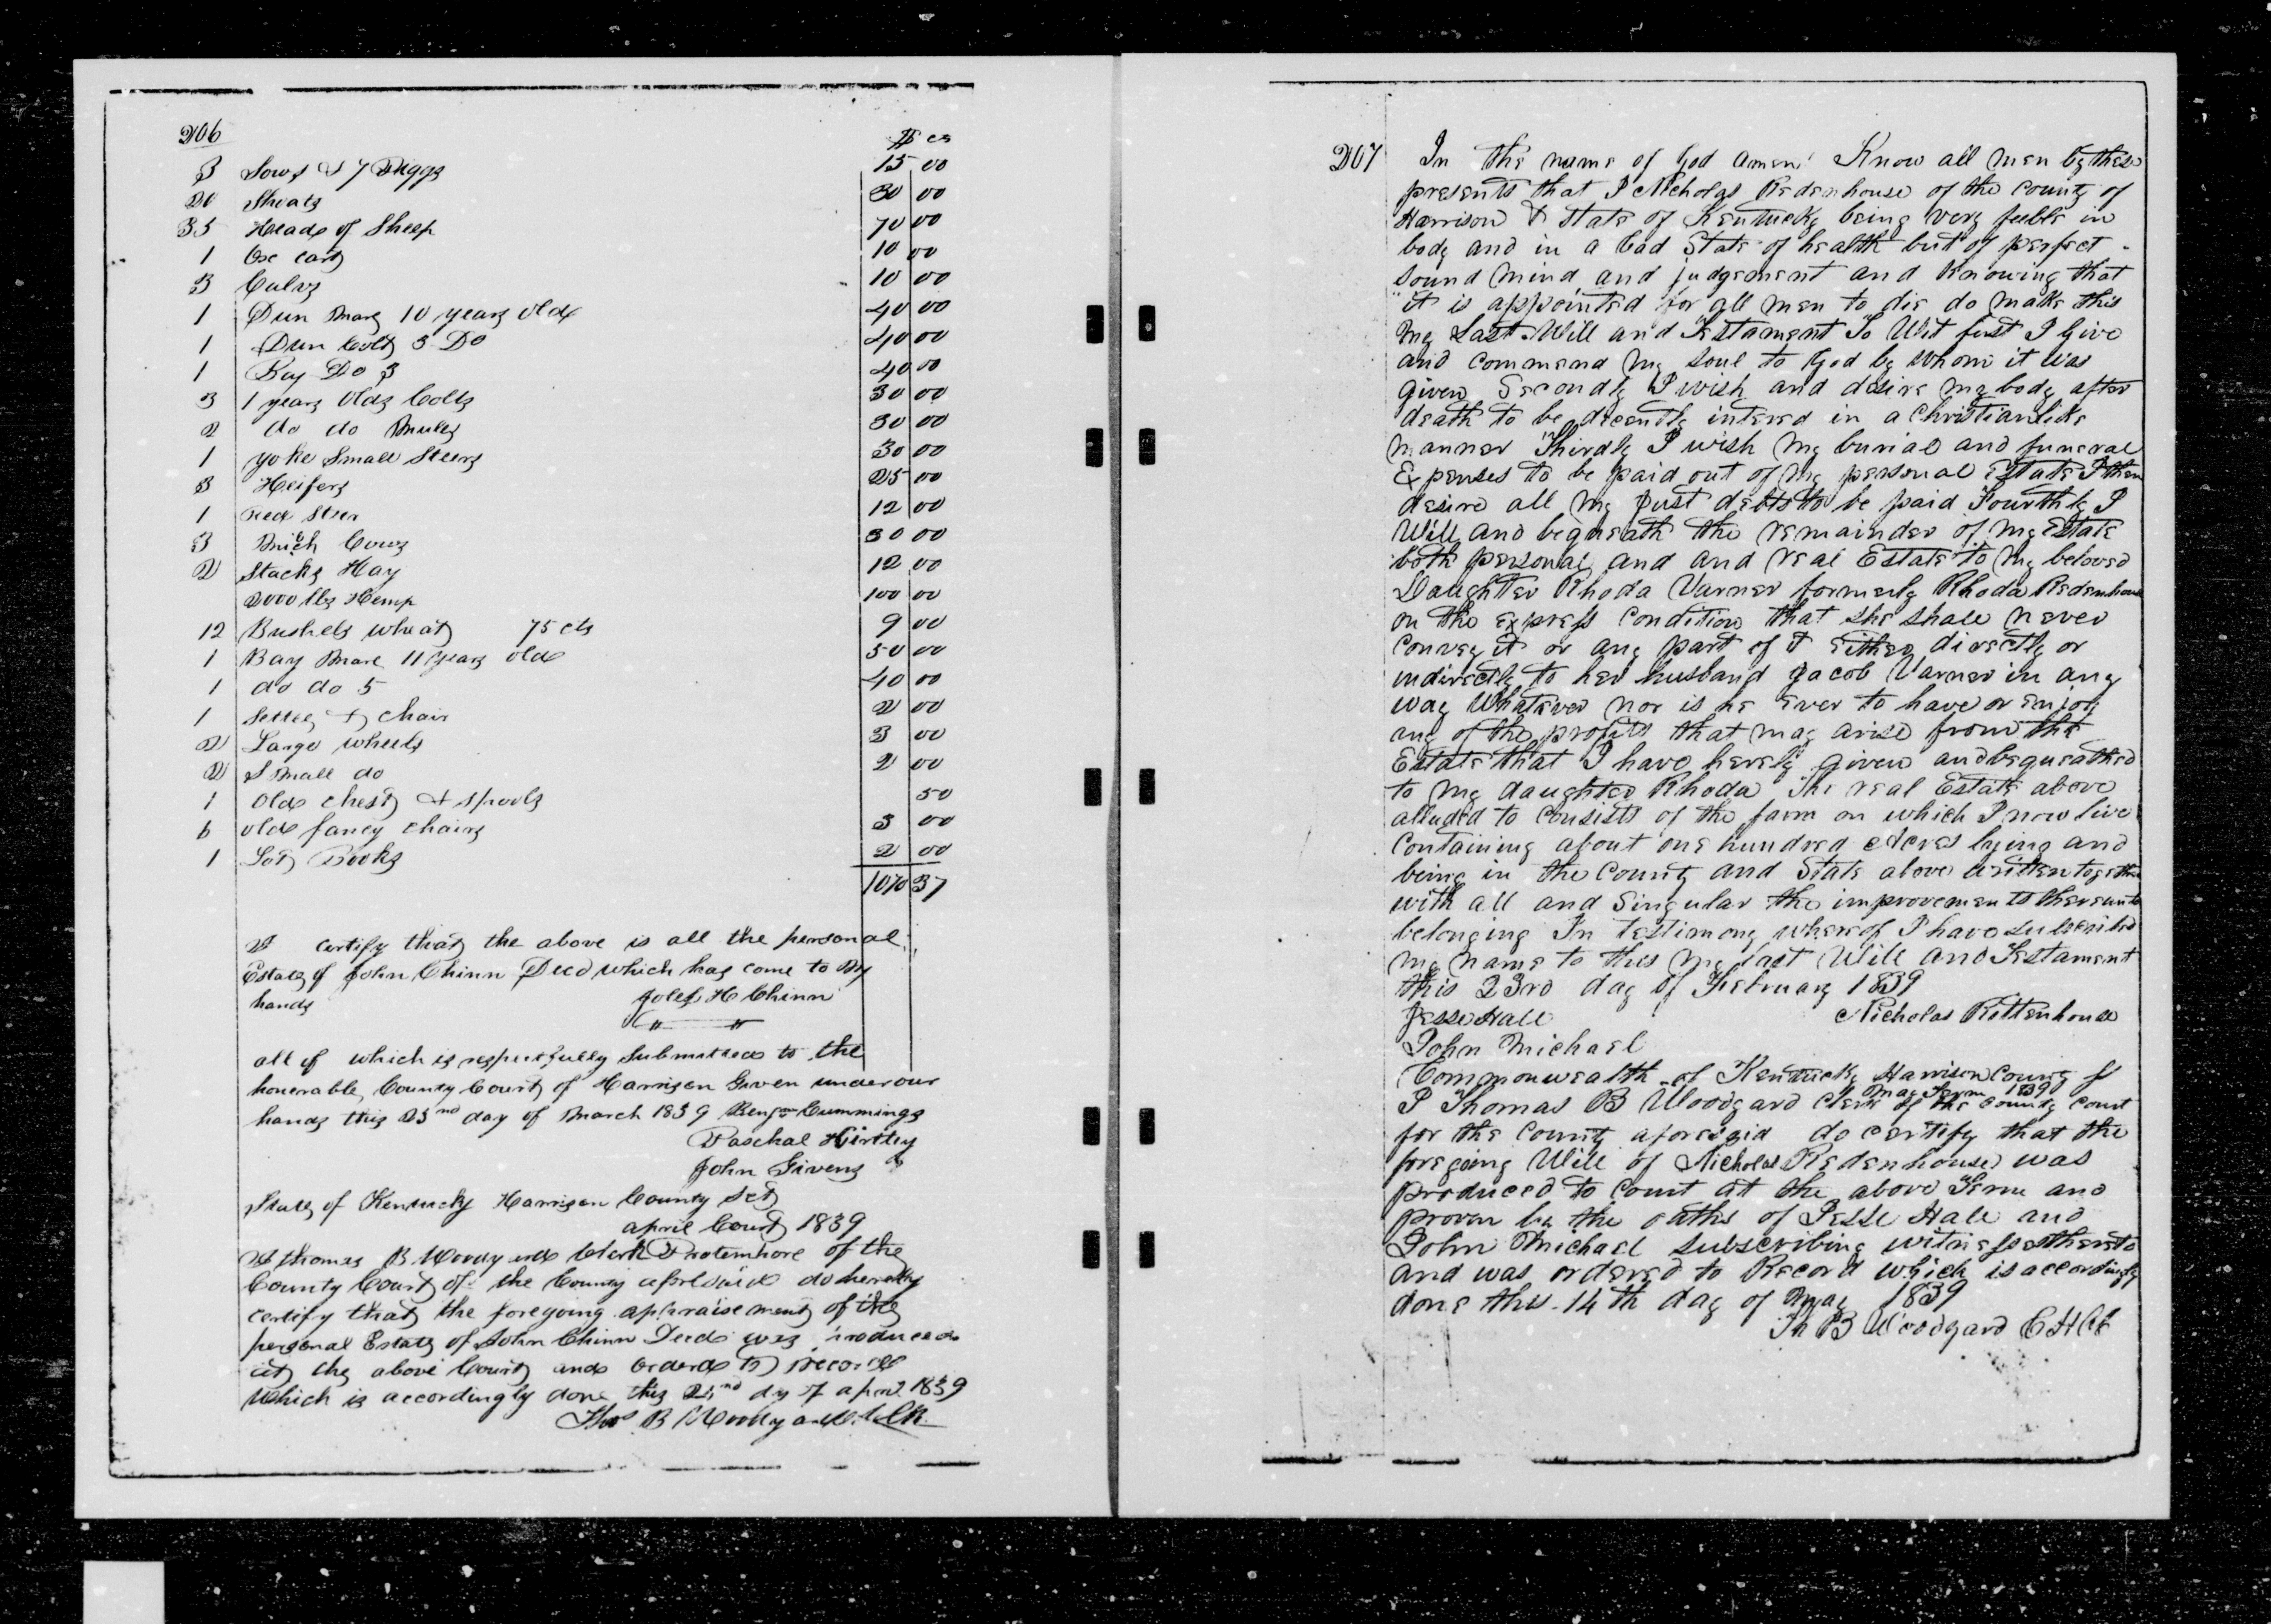 206
$ cs
3 Sows & 7 Piggs 15 00
20 Shoats 30 00
35 Heads of Sheep 70 00
1 Ox cart 10 00
3 Calvs 10 00
1 Dun Mare 10 years old 40 00
1 Dun Colt 3 Do 40 00
1 Bay Do 3 40 00
3 1 years Olds Colts 30 00
2 do do Mules 30 00
1 yoke Small Steers 30 00
3 Heifers 25 00
1 red Steer 12 00
3 Milch Cows 30 00
2 Stacks Hay 12 00
2000 lbs Hemp 100 00
12 Bushels wheat 75 cts 9 00
1 Bay Mare 11 years old 50 00
1 do do 5 40 00
1 Settee & chair 2 00
2 Large wheels 3 00
2 Small do 2 00
1 Old chest & spools 50
6 old fancy chairs 3 00
1 Lot Books 2 00
37
I certify that the above is all the personal
Estate of John Chinn Decd which has come to My
hands H Chinn
" "
all of which is respectfully Submitted to the
honerable County Court of Harrison Given under our
hands this day of March 1839 Benjn Cummings
Paschal Kirtley
John Givens
State of Kentucky Harrison County Sct
april Court 1839
I thomas B Woodyard Clerk Protemhore of the
County Court of the County aforesaid do hereby
certify that the foregoing appraisement of the
personal Estate of John Chinn Decd was produced
at the above Court and orderd to record
Which is accordingly done this dy of aprl 1839
Thos B Woodyard Clk
207 In the name of God amen! Know all Men by these
presents that I Nicholas Redenhouse of the County of
Harrison & State of Kentucky being very feeble in
body and in a bad State of health but of perfect
sound mind and judgement and Knowing that
it is appointed for all men to die do make this
my Last Will and Testament To Wit first I Give
and commend my soul to God by whom it was
given Secondly I wish and desire my body after
death to be decently intered in a Christianlike
manner Thirdly I wish my burial and funeral
Expenses to be paid out of my personal Estate I then
desire all my just debts to be paid Fourthly I
Will and bequeath the remainder of my Estate
both personal and and real Estate to my beloved
Daughter Rhoda Varner formerly Rhoda Redenhouse
on the express Condition that she shall never
convey it or any part of it either directly or
indirectly to her husband Jacob Varner in any
way Whatever nor is he ever to have or enjoy
any of the profits that may arise from the
Estate that I have herely given and bequeathed
to my daughter Rhoda The real Estate above
alluded to Consists of the farm on which I now live
Containing about one hundred Acres lying and
being in the County and State above written together
with all and Singular the improvements thereunto
belonging In testimony whereof I have subscribed
my name to this my Last Will and Testament
this 23rd day of February 1839
Jesse Hall Nicholas Rittenhouse
John Michael
Commonwealth of Kentucky Harrison County
May Term 1839
I Thomas B Woodyard Clerk of the County Court
for the County aforesaid do certify that the
foregoing Will of Nicholas Redenhouse was
produced to Court at the above Term and
proven by the oaths of Jesse Hall and
John Michael subscribing witnesses thereto
and was ordered to Record which is accordingly
done this 14th day of May 1839
Th B Woodyard